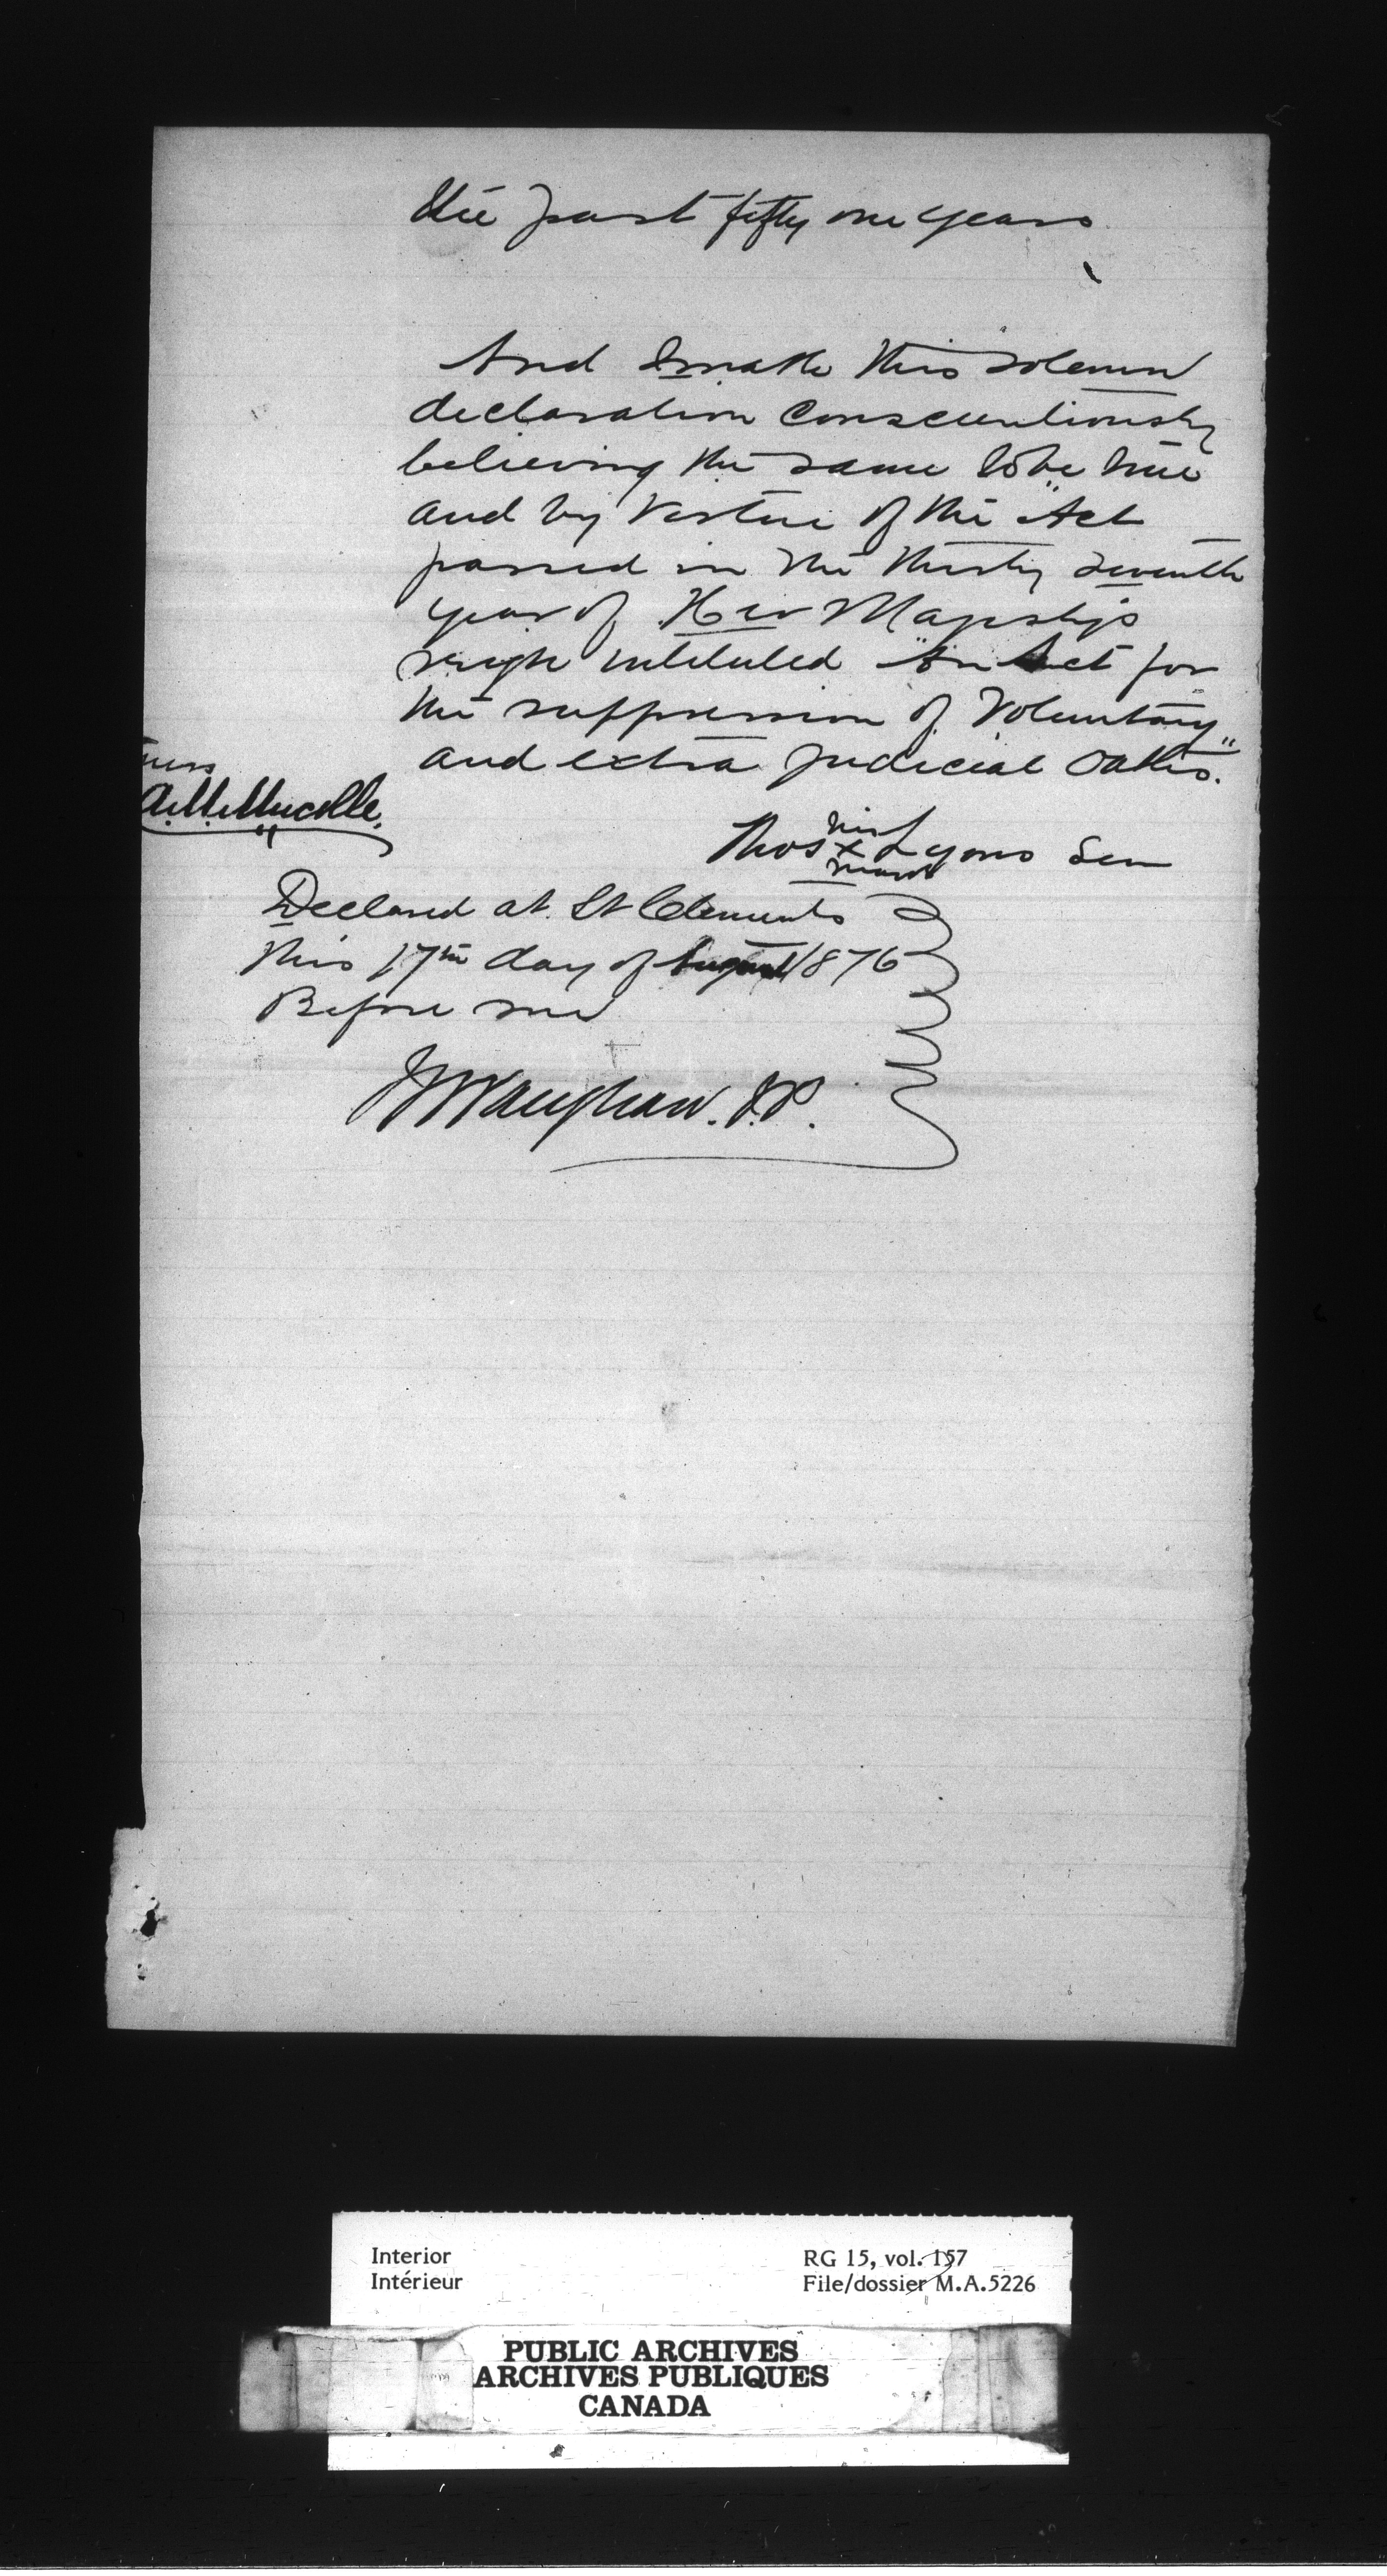 the past fifty one years
And I make this solemn
declaration Conscientiously
believing the same to be true
and by Virtue of the Act
passed in the thirty seventh
year of Her Majestys
reign intituled "An Act for
the suppression of Voluntary
and extra judicial Oaths."
Thos his x mark Lyons Sen
Declared at St Clements
this 17th day of August 1876
Before me
Vaughan. J.P.
Interior
Intérieur
RG 15, vol. 157
File/dossier M.A.5226
PUBLIC ARCHIVES
ARCHIVES PUBLIQUES
CANADA